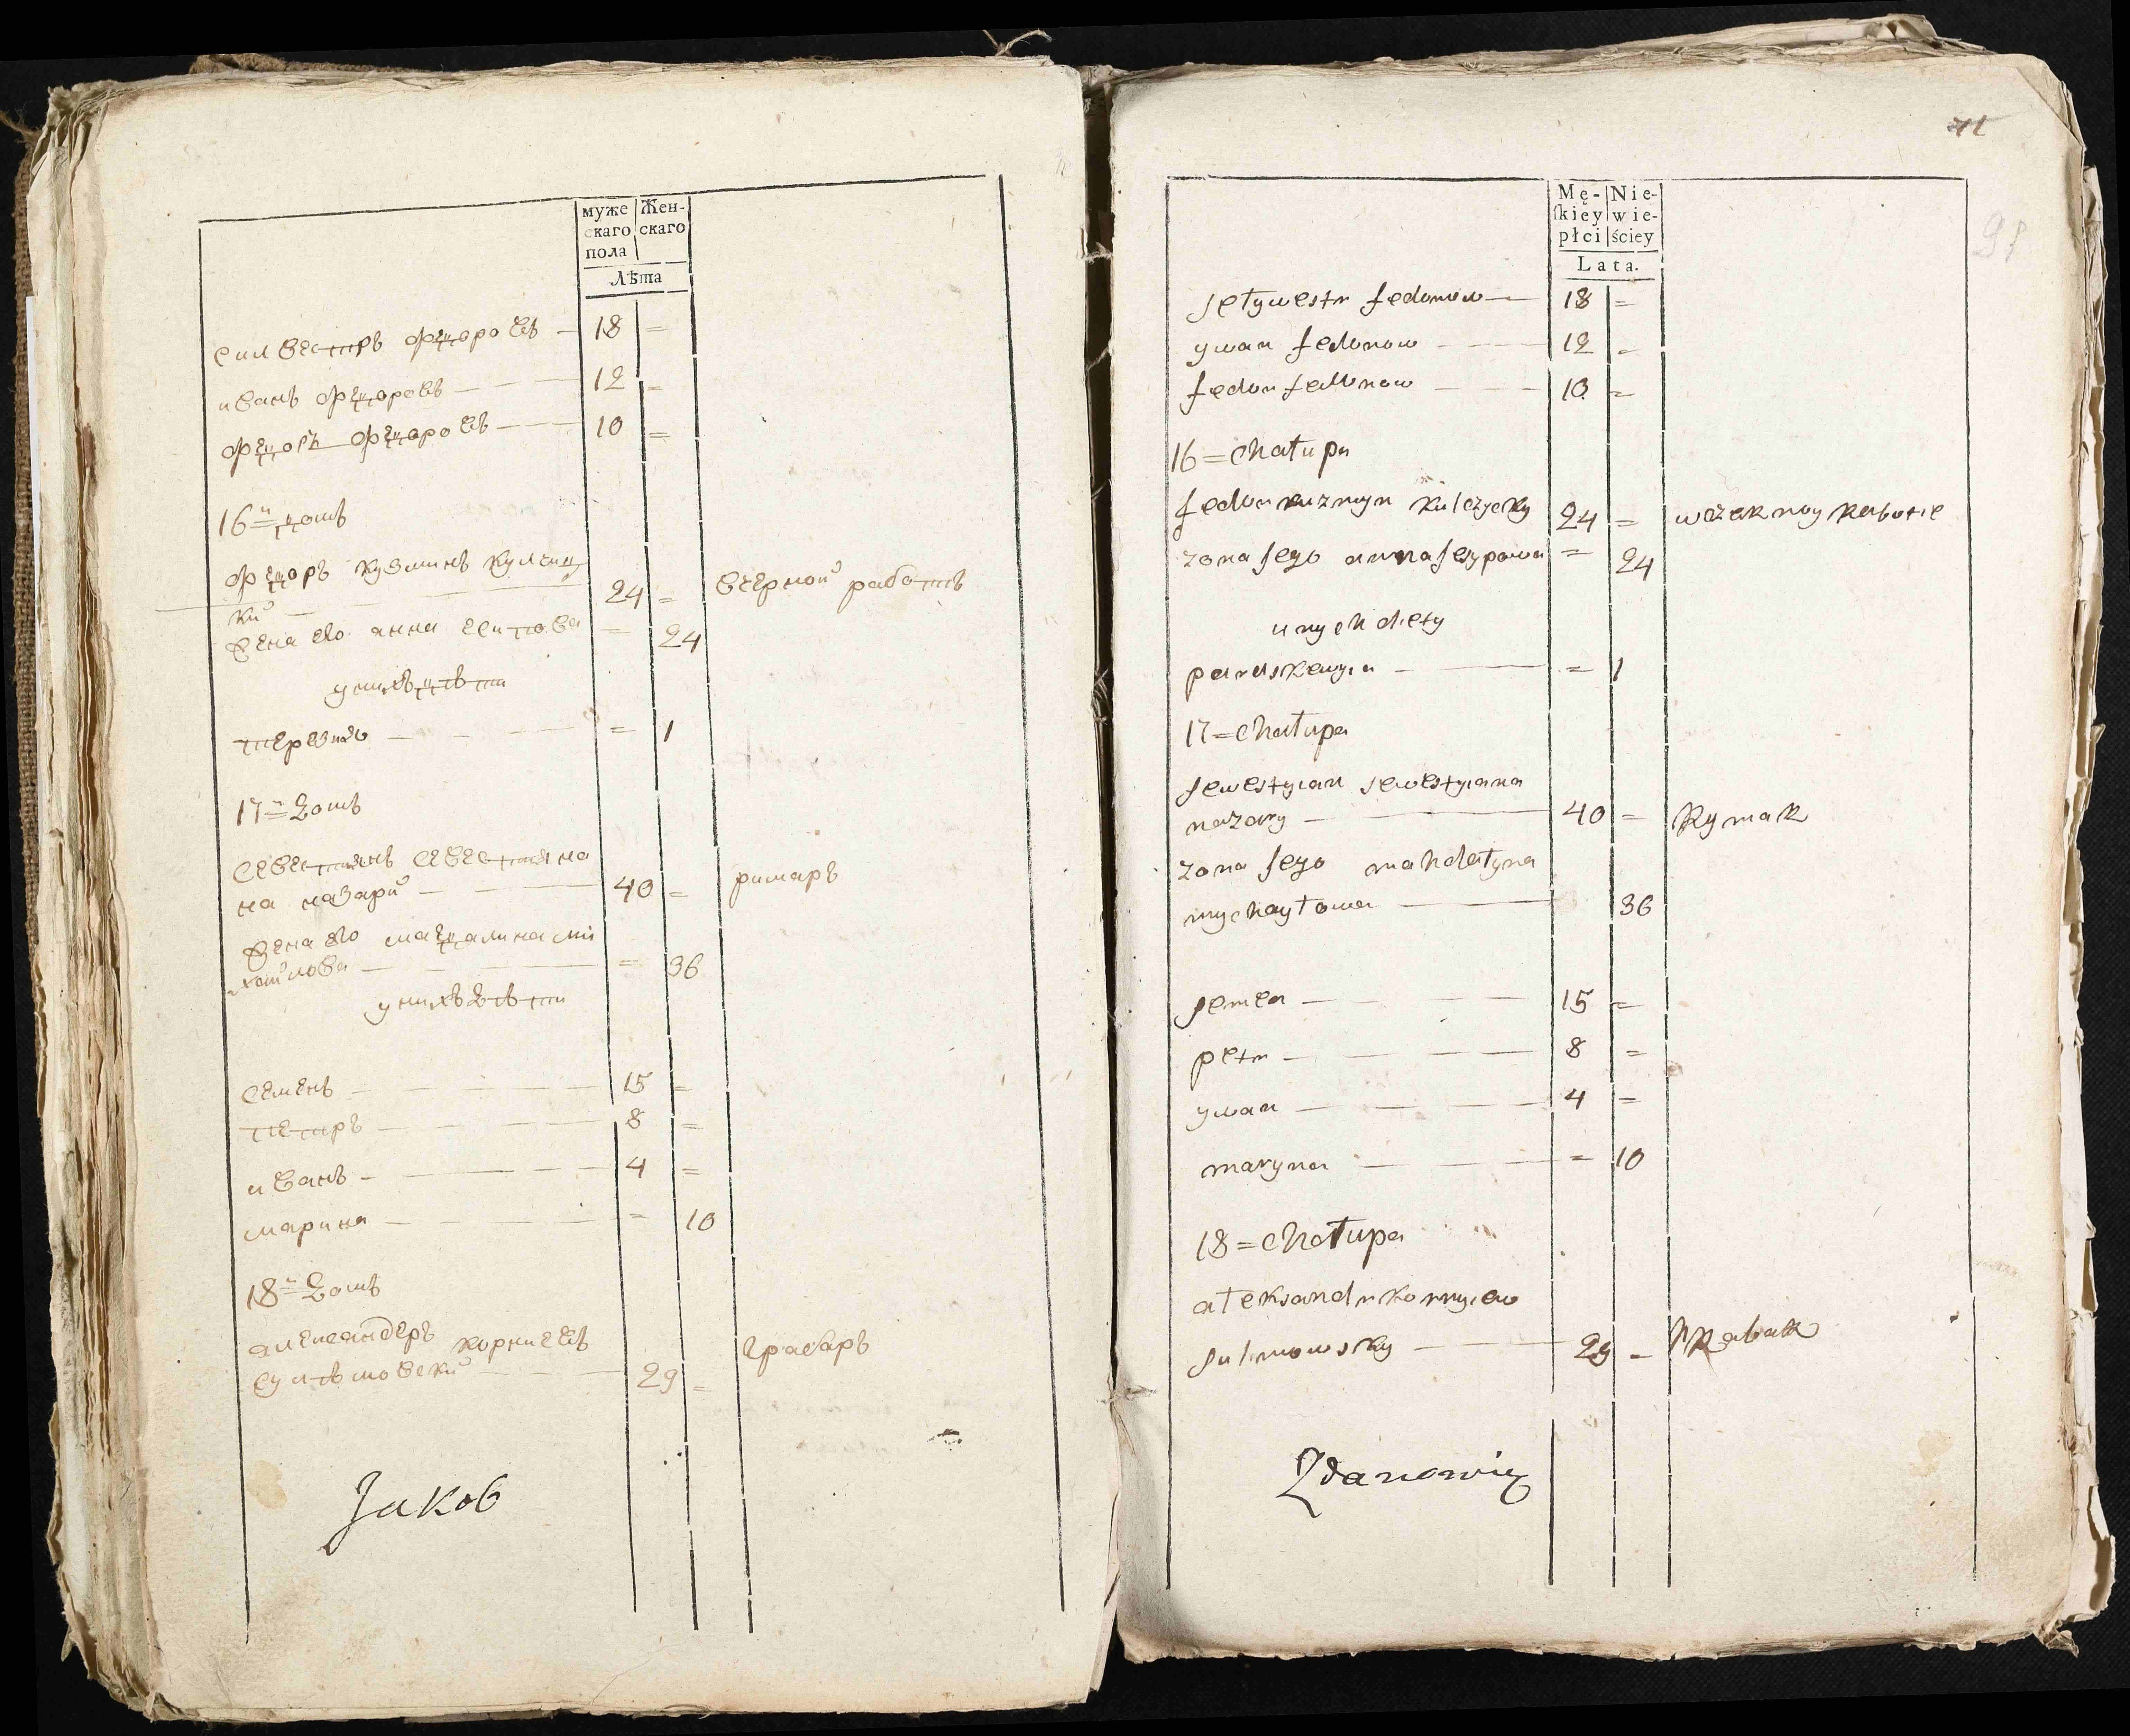 муже скаго пола
Жен- скаго
Лѣта
силвестръ федоровъ — 18 =
иванъ федоровъ — 12 =
федоръ федоровъ — 10 =
16й домъ
федоръ кузминъ кулчиц
кий 24 = вчерной работѣ
жена его анна есипова = 24
унихъ дѣти
= 1
17й домъ
севестиянъ севестияна
на назарий — 40 = римаръ
жена его магдалина ми
хайлова — = 36
унихъ дѣти
семенъ — 15 =
петръ — 8 =
иванъ — 4 =
марина — = 10
18й домъ
александеръ корниевъ грабаръ
сулѣмовский — 29 =
Jakob
71
Mę- skiey płci
Nie- wie- ściey
Lata.
seływestr fedorow — 18 =
ywan fedorow — 12 =
fedor fedorow — 10 =
16 = chałupa
fedor kuzmyn kulczycky 24 = wczarnoy rabotie
zona jego anna jesypowa = 24
unych diety
paraskewyia — = 1
17 = chałupa
sewestyian sewestyiana
nazary — 40 = Rymar
zona jego mahdałyna
mychayłowa — 36
semen — 15 =
petr — 8 =
ywan — 4 =
maryna — = 10
18 = chałupa
ałeksandr kornyiew
sulimowsky — 29 = hRabar
Zdanowicz